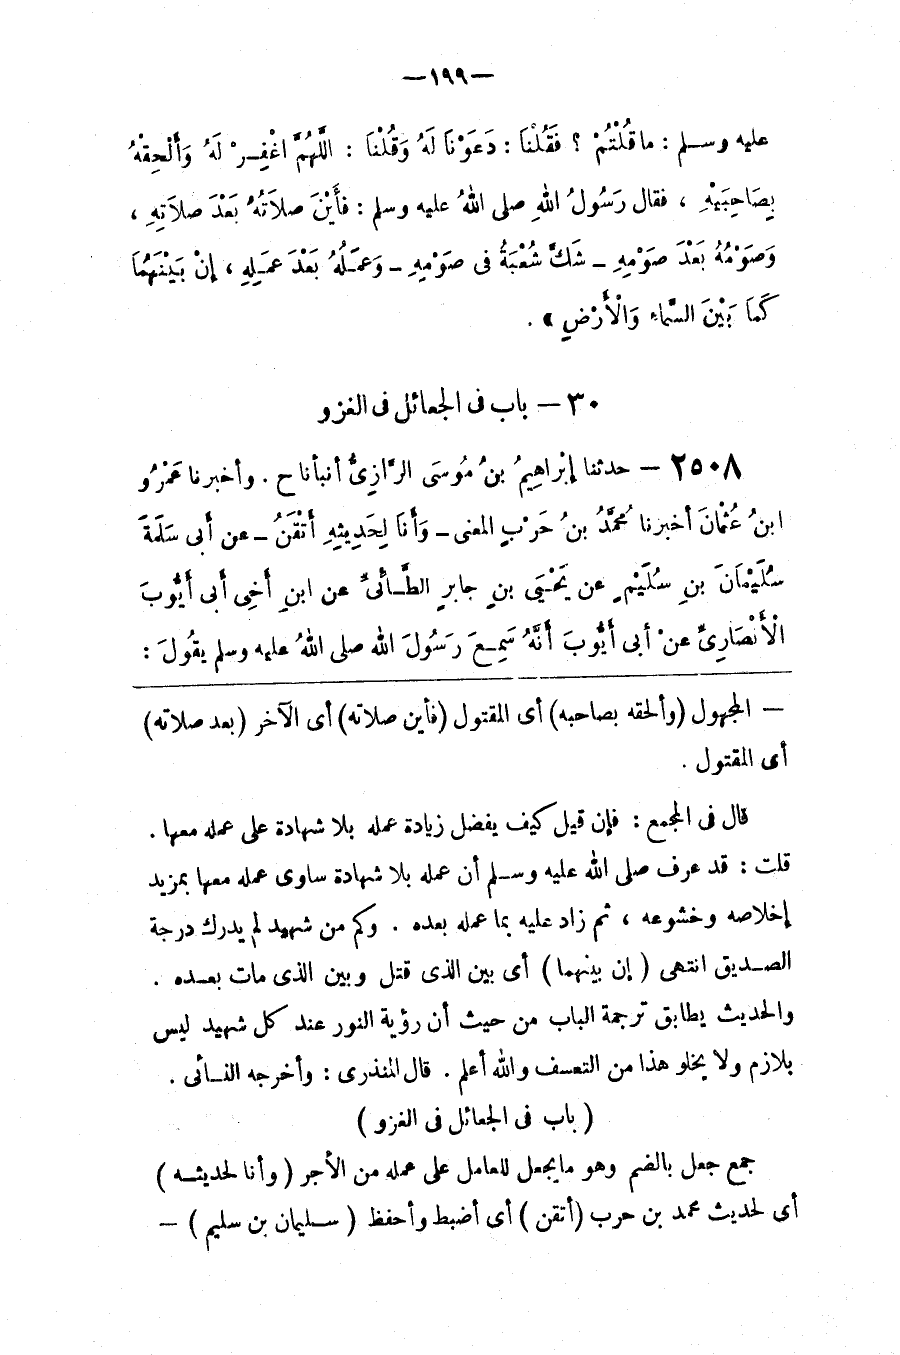 —١٩٩—
عليه وسلم : ما قُلْتُمْ ؟ فَقُلْنَا : دَعَوْنَا لَهُ وَقُلْنَا : اللَّهُمَّ اغْفِرْ لَهُ وَأَلْحِقْهُ
بِصَاحِبَهْهِ ، فقال رَسُولُ اللهِ صلى اللهُ عليه وسلم : فَأَيْنَ صلاَتَهُ بَعْدَ صلاَتِهِ ،
وَصَوْمُهُ بَعْدَ صَوْمِهِ - شَكَّ شُعْبَةُ فى صَوْمِهِ - وَعَمَلُهُ بَعْدَ عمَلِهِ ، إِنْ بَيْنَهُمَا
كَمَا بَيْنَ السَّماءِ وَالْأَرْضِ » .
٣٠ — باب فى الجعائل فى الغزو
٢٥٠٨ — حدثنا إِبْرَاهِيمُ بنُ مُوسَى الرَّازِىُّ أنبأنا ح . وأخبرنا عَمْرُو
ابنُ عُثْمَانَ أخبرنا مُحمَّدُ بنُ حَرْبٍ المعنى - وَأَنَا لِحَدِيثِهِ أَتْقَنُ - عن أَبى سَلَمَةَ
سُلَيْمَانَ بنِ سُلَيْمٍ عن يَحْيَى بنِ جابرٍ الطَّائىِّ عن ابنِ أَخِى أَبى أَيُّوبَ
الْأَنْصَارِىِّ عنْ أبى أَيُّوبَ أَنَّهُ سَمِعَ رَسُولَ الله صلى اللهُ عليه وسلم يقُولَ :
— المجهول (وألحقه بصاحبه) أى المقتول (فأين صلاته) أى الآخر (بعد صلاته)
أى المقتول .
قال فى المجمع : فإن قيل كيف يفضل زيادة عمله بلا شهادة على عمله معها .
قلت : قد عرف صلى الله عليه وسلم أن عمله بلا شهادة ساوى عمله معها بمزيد
إخلاصه وخشوعه ، ثم زاد عليه بما عمله بعده . وكم من شهيد لم يدرك درجة
الصديق انتهى ( إن بينهما ) أى بين الذى قتل وبين الذى مات بعده .
والحديث يطابق ترجمة الباب من حيث أن رؤية النور عند كل شهيد ليس
بلازم ولا يخلو هذا من التعسف والله أعلم . قال المنذرى : وأخرجه النسائى .
( باب فى الجعائل فى الغزو )
جمع جعل بالضم وهو مايجعل للعامل على عمله من الأجر ( وأنا لحديثه )
أى لحديث محمد بن حرب (أتقن ) أى أضبط وأحفظ ( سليمان بن سليم ) —